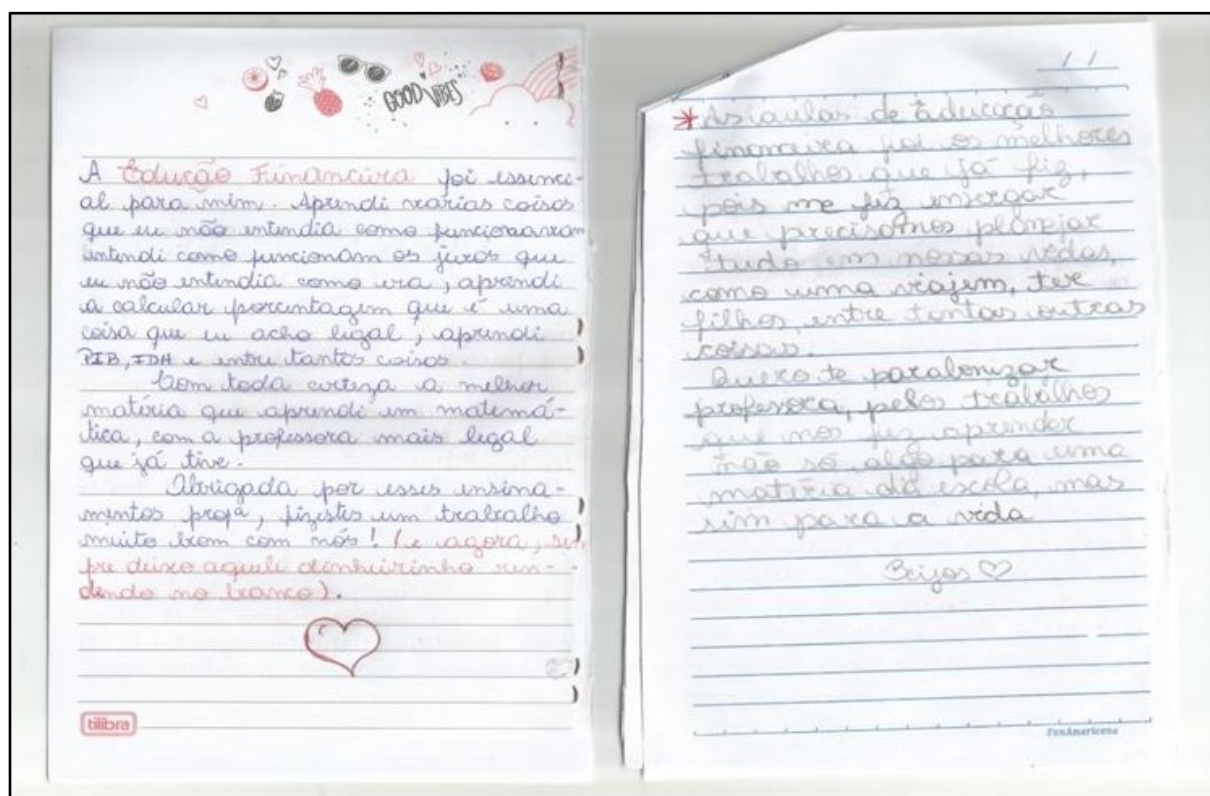 GOOD VIBES
A Edução Financeira foi essenci-
al para mim. Aprendi varias coisas
que eu não entendia como funcionavam
entendi como funcionam os juros que
eu não entendia como era, aprendi
a calcular porcentagem que é uma
coisa que eu acho legal, aprendi
PIB, IDH e entre tantas coisas.
Com toda certeza a melhor
matéria que aprendi em matemá-
tica, com a professora mais legal
que já tive.
Obrigada por esses ensina-
mentos profª, fizestes um trabalho
muito bom com nós! (e agora, sem
pre deixo aquele dinheirinho ren-
dendo no banco).
tilibra
/ /
* As aulas de educação
financeira foi os melhores
trabalhos que já fiz,
pois me fez enxergar
que precisamos planejar
tudo em nossas vidas,
como uma viajem, ter
filhos, entre tantas outras
coisas.
Quero te parabenizar
professora, pelos trabalhos
que nos fez aprender
não só algo para uma
matéria da escola, mas
sim para a vida
Beijos ♡
PanAmericana